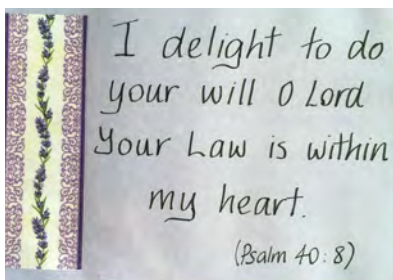 I delight to do
your will O Lord
Your Law is within
my heart.
(Psalm 40:8)